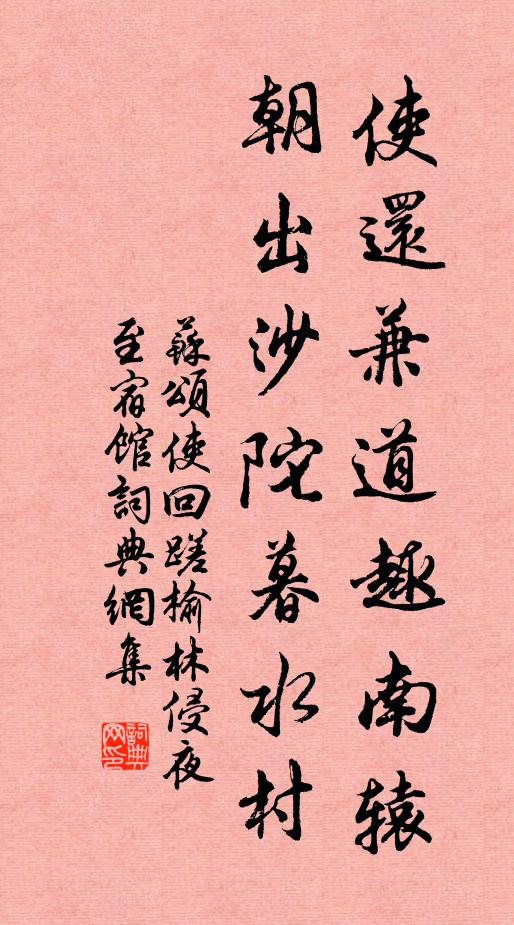 使還兼道趣南辕
朝出沙陀暮水村
蘇頌使回蹉榆林侵夜
至宿館詞典網集
詞典网印